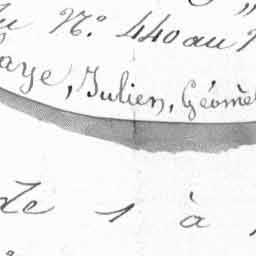 N.º 440 au
aye, Julien, Géomè
de 1 à